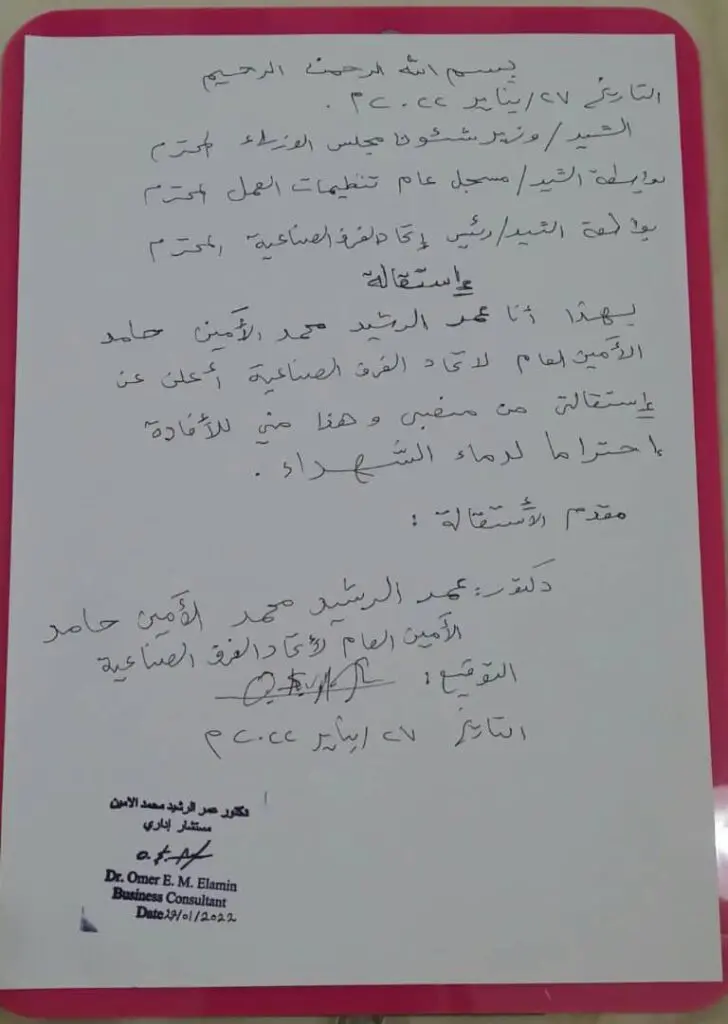 بسم الله الرحمن الرحيم
التاريخ ٢٧/يناير ٢٠٢٢م .
السيد/ وزير شئون مجلس الوزراء المحترم
بواسطة السيد/ مسجل عام تنظيمات العمل المحترم
بواسطة السيد/ رئيس إتحاد الغرف الصناعية المحترم
إستقالة
بهذا أنا عمر الرشيد محمد الأمين حامد
الأمين العام لاتحاد الغرف الصناعية أعلن عن
إستقالتي من منصبي وهذا مني للأفادة
إحتراما لدماء الشهداء .
مقدم الأستقالة :
دكتور: عمر الرشيد محمد الأمين حامد
الأمين العام لأتحاد الغرف الصناعية
التوقيع :
التاريخ ٢٧ /يناير ٢٠٢٢م
دكتور عمر الرشيد محمد الامين
مستشار إداري
Dr. Omer E. M. Elamin
Business Consultant
Date 27/01/2022